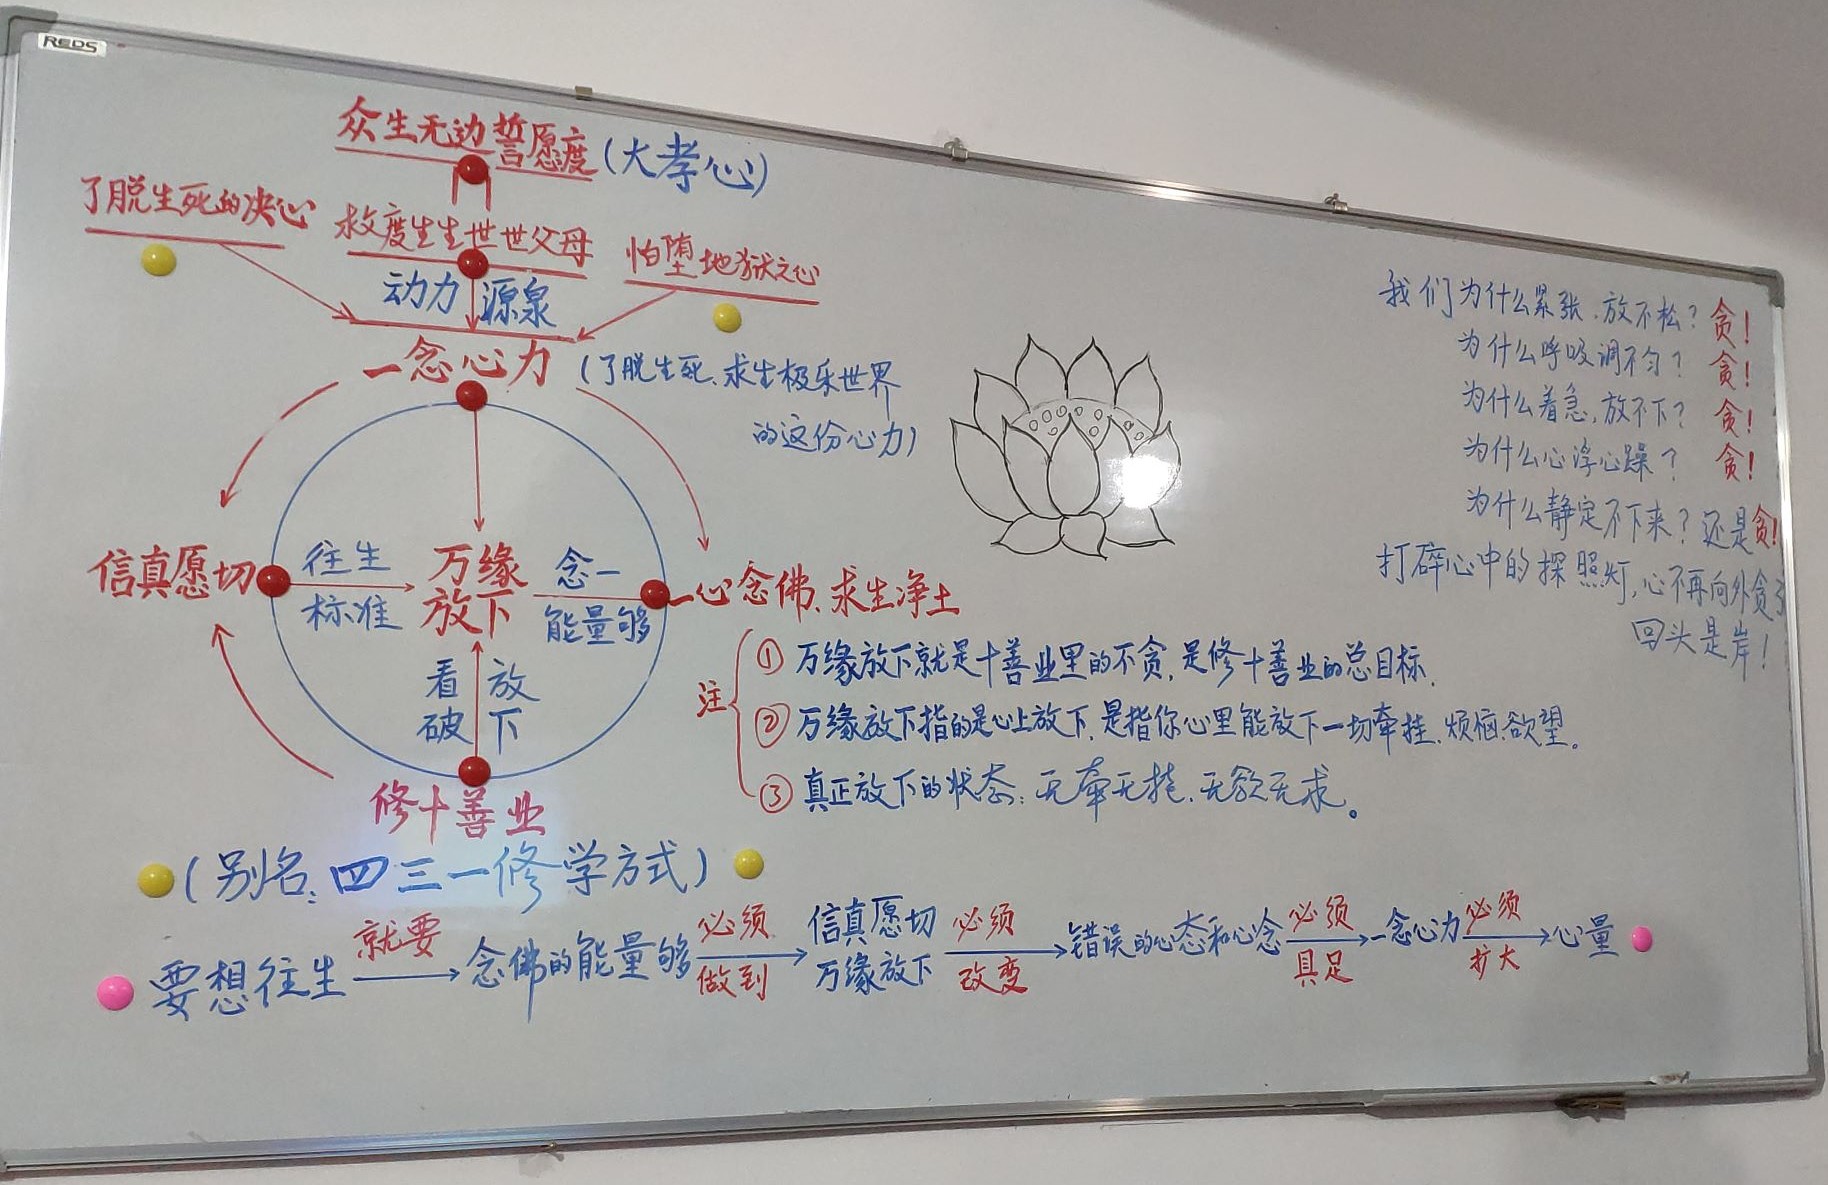 REDS
众生无边誓愿度(大孝心)
了脱生死的决心
救度生生世世父母
怕堕地狱之心
动力源泉
一念心力
(了脱生死、求生极乐世界
的这份心力)
信真愿切
往生
标准
万缘
放下
念一
能量够
一心念佛、求生净土
看破
放下
修十善业
(别名:四三一修学方式)
注
①万缘放下就是十善业里的不贪,是修十善业的总目标.
②万缘放下指的是心上放下,是指你心里能放下一切牵挂、烦恼、欲望。
③真正放下的状态:无牵无挂、无欲无求。
我们为什么紧张、放不松?贪!
为什么呼吸调不匀?贪!
为什么着急,放不下?贪!
为什么心浮心躁?贪!
为什么静定不下来?还是贪!
打碎心中的探照灯,心不再向外贪了
回头是岸!
要想往生
就要
念佛的能量够
必须
做到
信真愿切
万缘放下
必须
改变
错误的心态和心念
必须
具足
一念心力
必须
扩大
心量